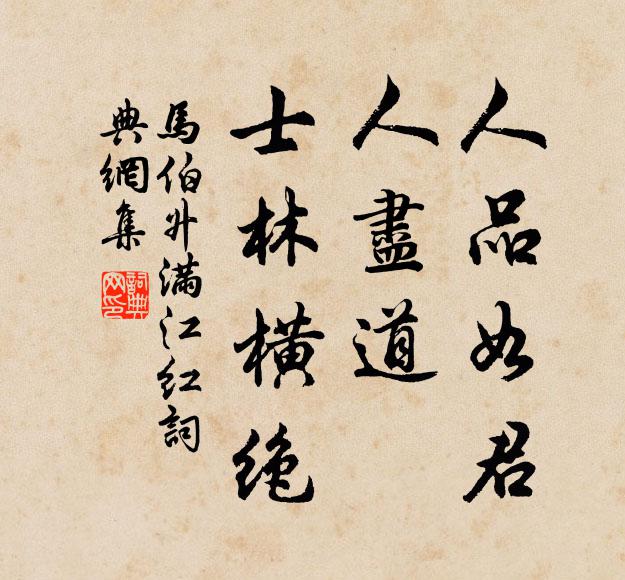 人品如君
人盡道
士林橫絶
馬伯升滿江紅詞
典網集
詞典网印